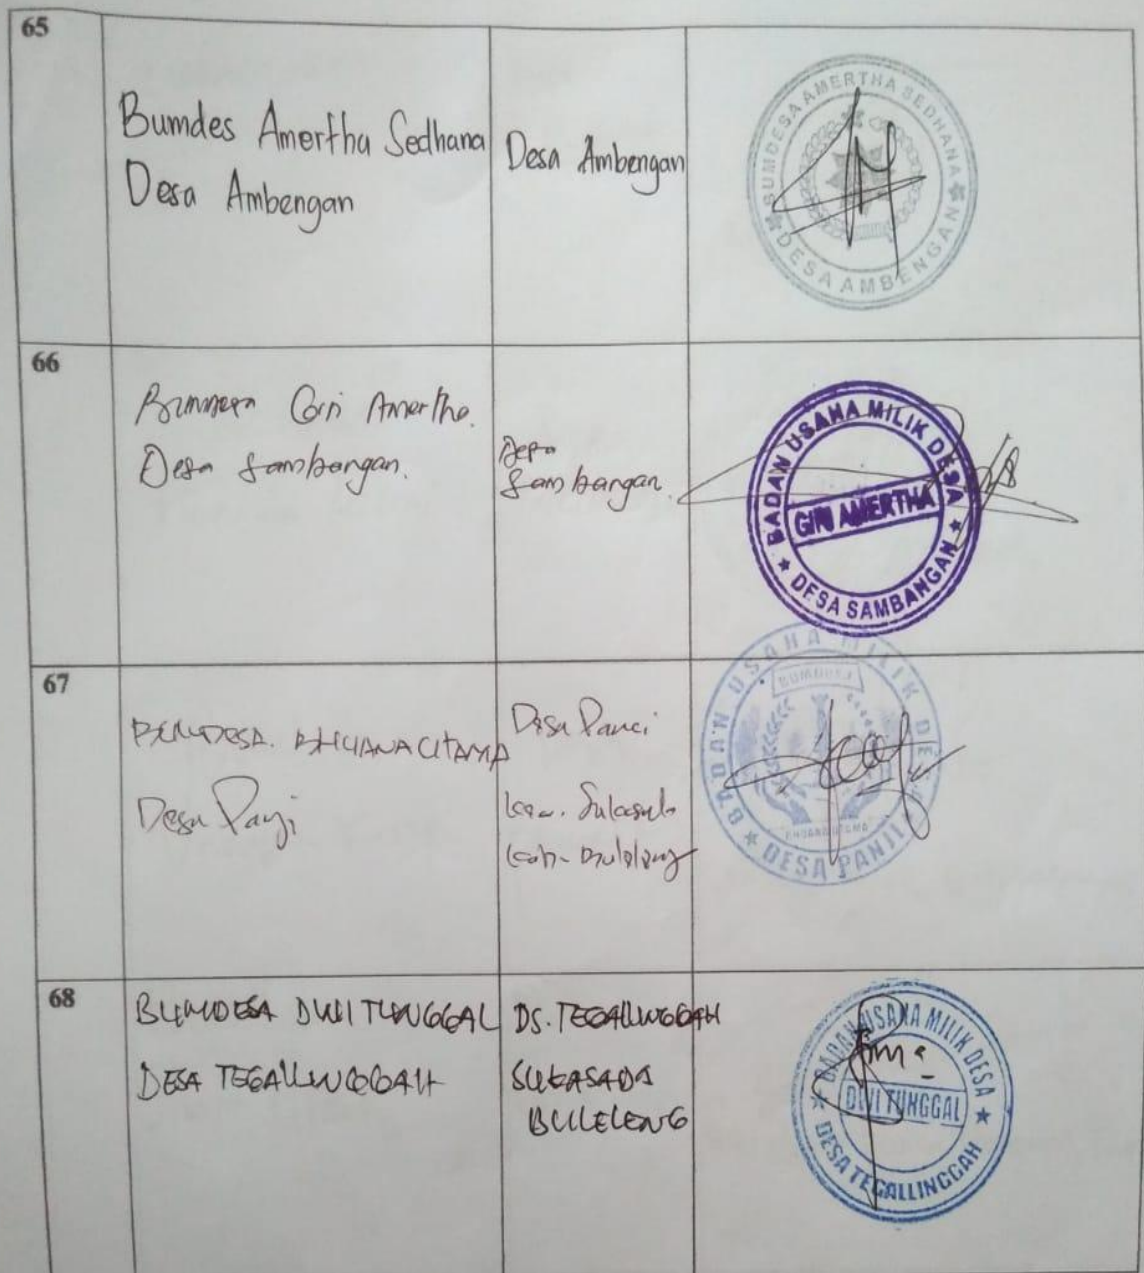 65
Bumdes Amertha Sedhana
Desa Ambengan
Desa Ambengan
BUMDESA AMERTHA SEDHANA
DESA AMBENGAN
66
Giri Amertha.
Desa Sambangan.
Desa
Sambangan.
BADAN USAHA MILIK DESA
GIRI AMERTHA
DESA SAMBANGAN
67
BUMDESA. BHUANA UTAMA
Desa Panji
Desa Panji
Kec. Sukasada
Kab. Buleleng
BADAN USAHA MILIK DESA
BUMDESA
BHUANA UTAMA
DESA PANJI
68
BUMDESA DWI TUNGGAL
DESA TEGALLINGGAH
DS. TEGALLINGGAH
SUKASADA
BULELENG
BADAN USAHA MILIK DESA
DWI TUNGGAL
DESA TEGALLINGGAH